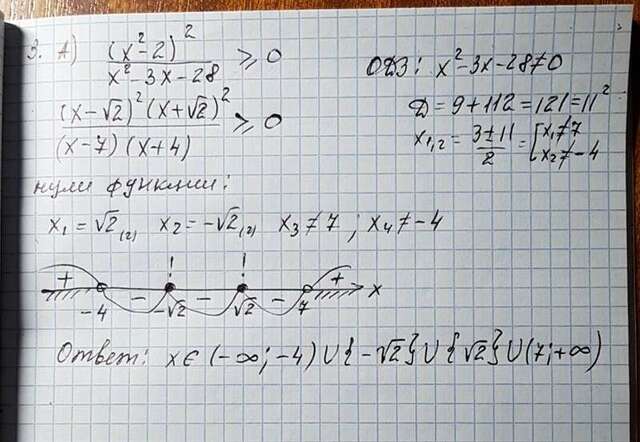 3. А) (x²-2)² / (x²-3x-28) ≥ 0
ОДЗ: x²-3x-28≠0
Д = 9+112=121=11²
x₁,₂ = (3±11)/2 = [x₁≠7 x₂≠-4
(x-√2)²(x+√2)² / (x-7)(x+4) ≥ 0
нули функции:
x₁ = √2 (2) x₂ = -√2 (2) x₃ ≠ 7 ; x₄ ≠ -4
! !
+ - - - +
-4 -√2 √2 7 x
Ответ: x ∈ (-∞; -4) ∪ {-√2} ∪ {√2} ∪ (7; +∞)